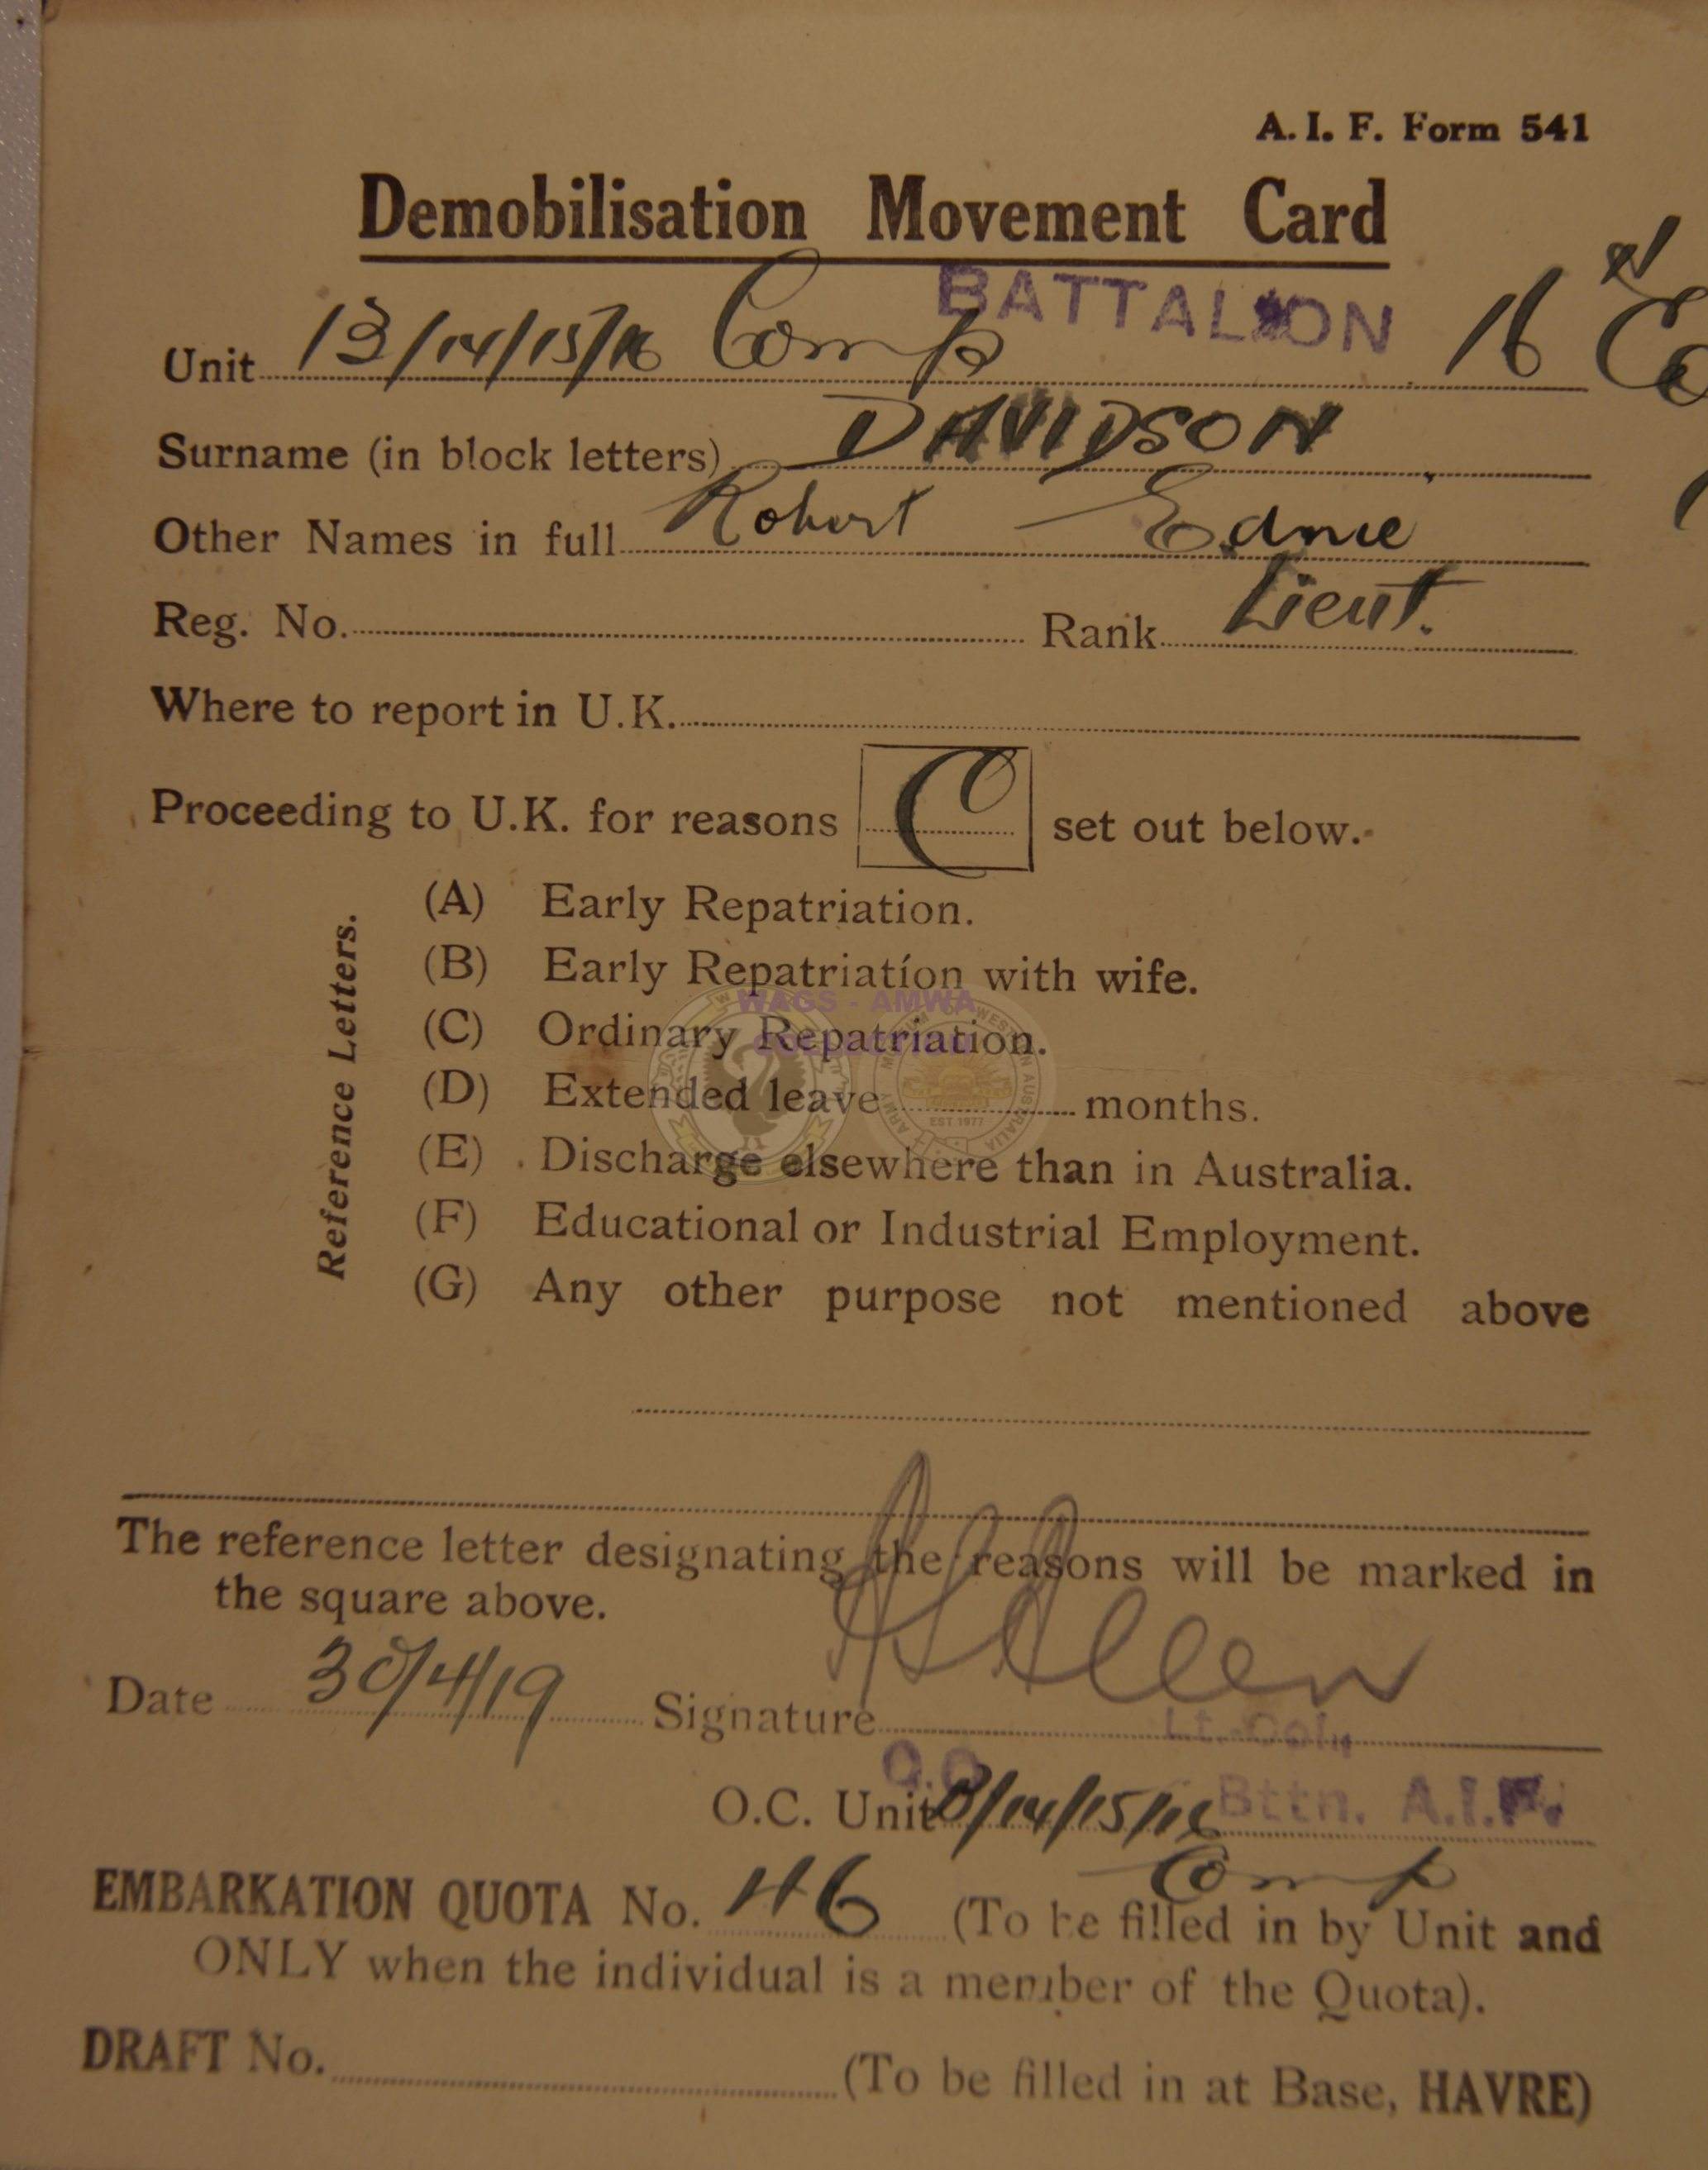 A. I. F. Form 541
Demobilisation Movement Card
BATTALION
Unit 13/14/15/16 Comp 16
Surname (in block letters) DAVIDSON
Other Names in full Robert Edmie
Reg. No. Rank Lieut.
Where to report in U.K.
Proceeding to U.K. for reasons C set out below.
Reference Letters.
(A) Early Repatriation.
(B) Early Repatriation with wife.
WAGS - AMWA
(C) Ordinary Repatriation.
(D) Extended leave months.
EST. 1977
(E) Discharge elsewhere than in Australia.
(F) Educational or Industrial Employment.
(G) Any other purpose not mentioned above
The reference letter designating the reasons will be marked in
the square above.
Date 30/4/19 Signature
Lt.-Col.
O.C. Unit 13/14/15/16 Bttn. A.I.F.
Comp
EMBARKATION QUOTA No. 46 (To be filled in by Unit and
ONLY when the individual is a member of the Quota).
DRAFT No. (To be filled in at Base, HAVRE)